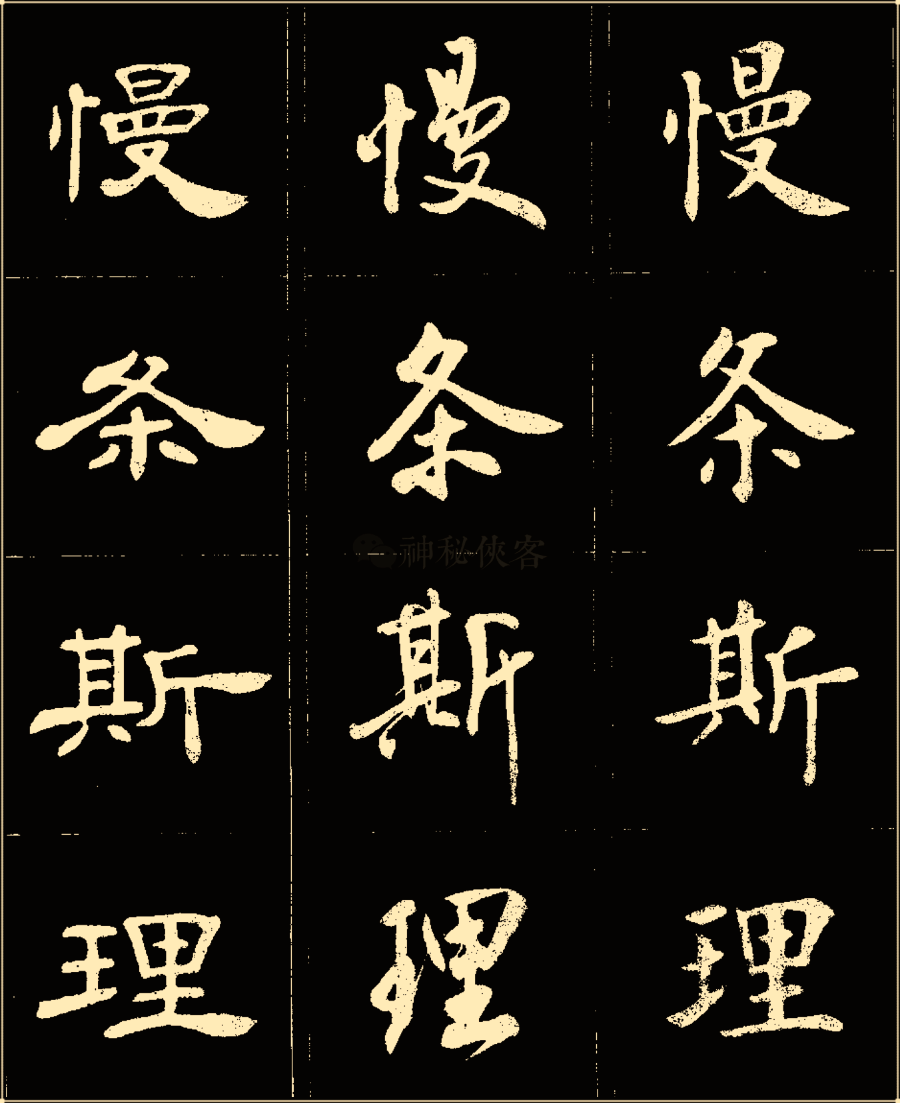 慢慢慢
条条条
斯斯斯
理理理
神秘俠客